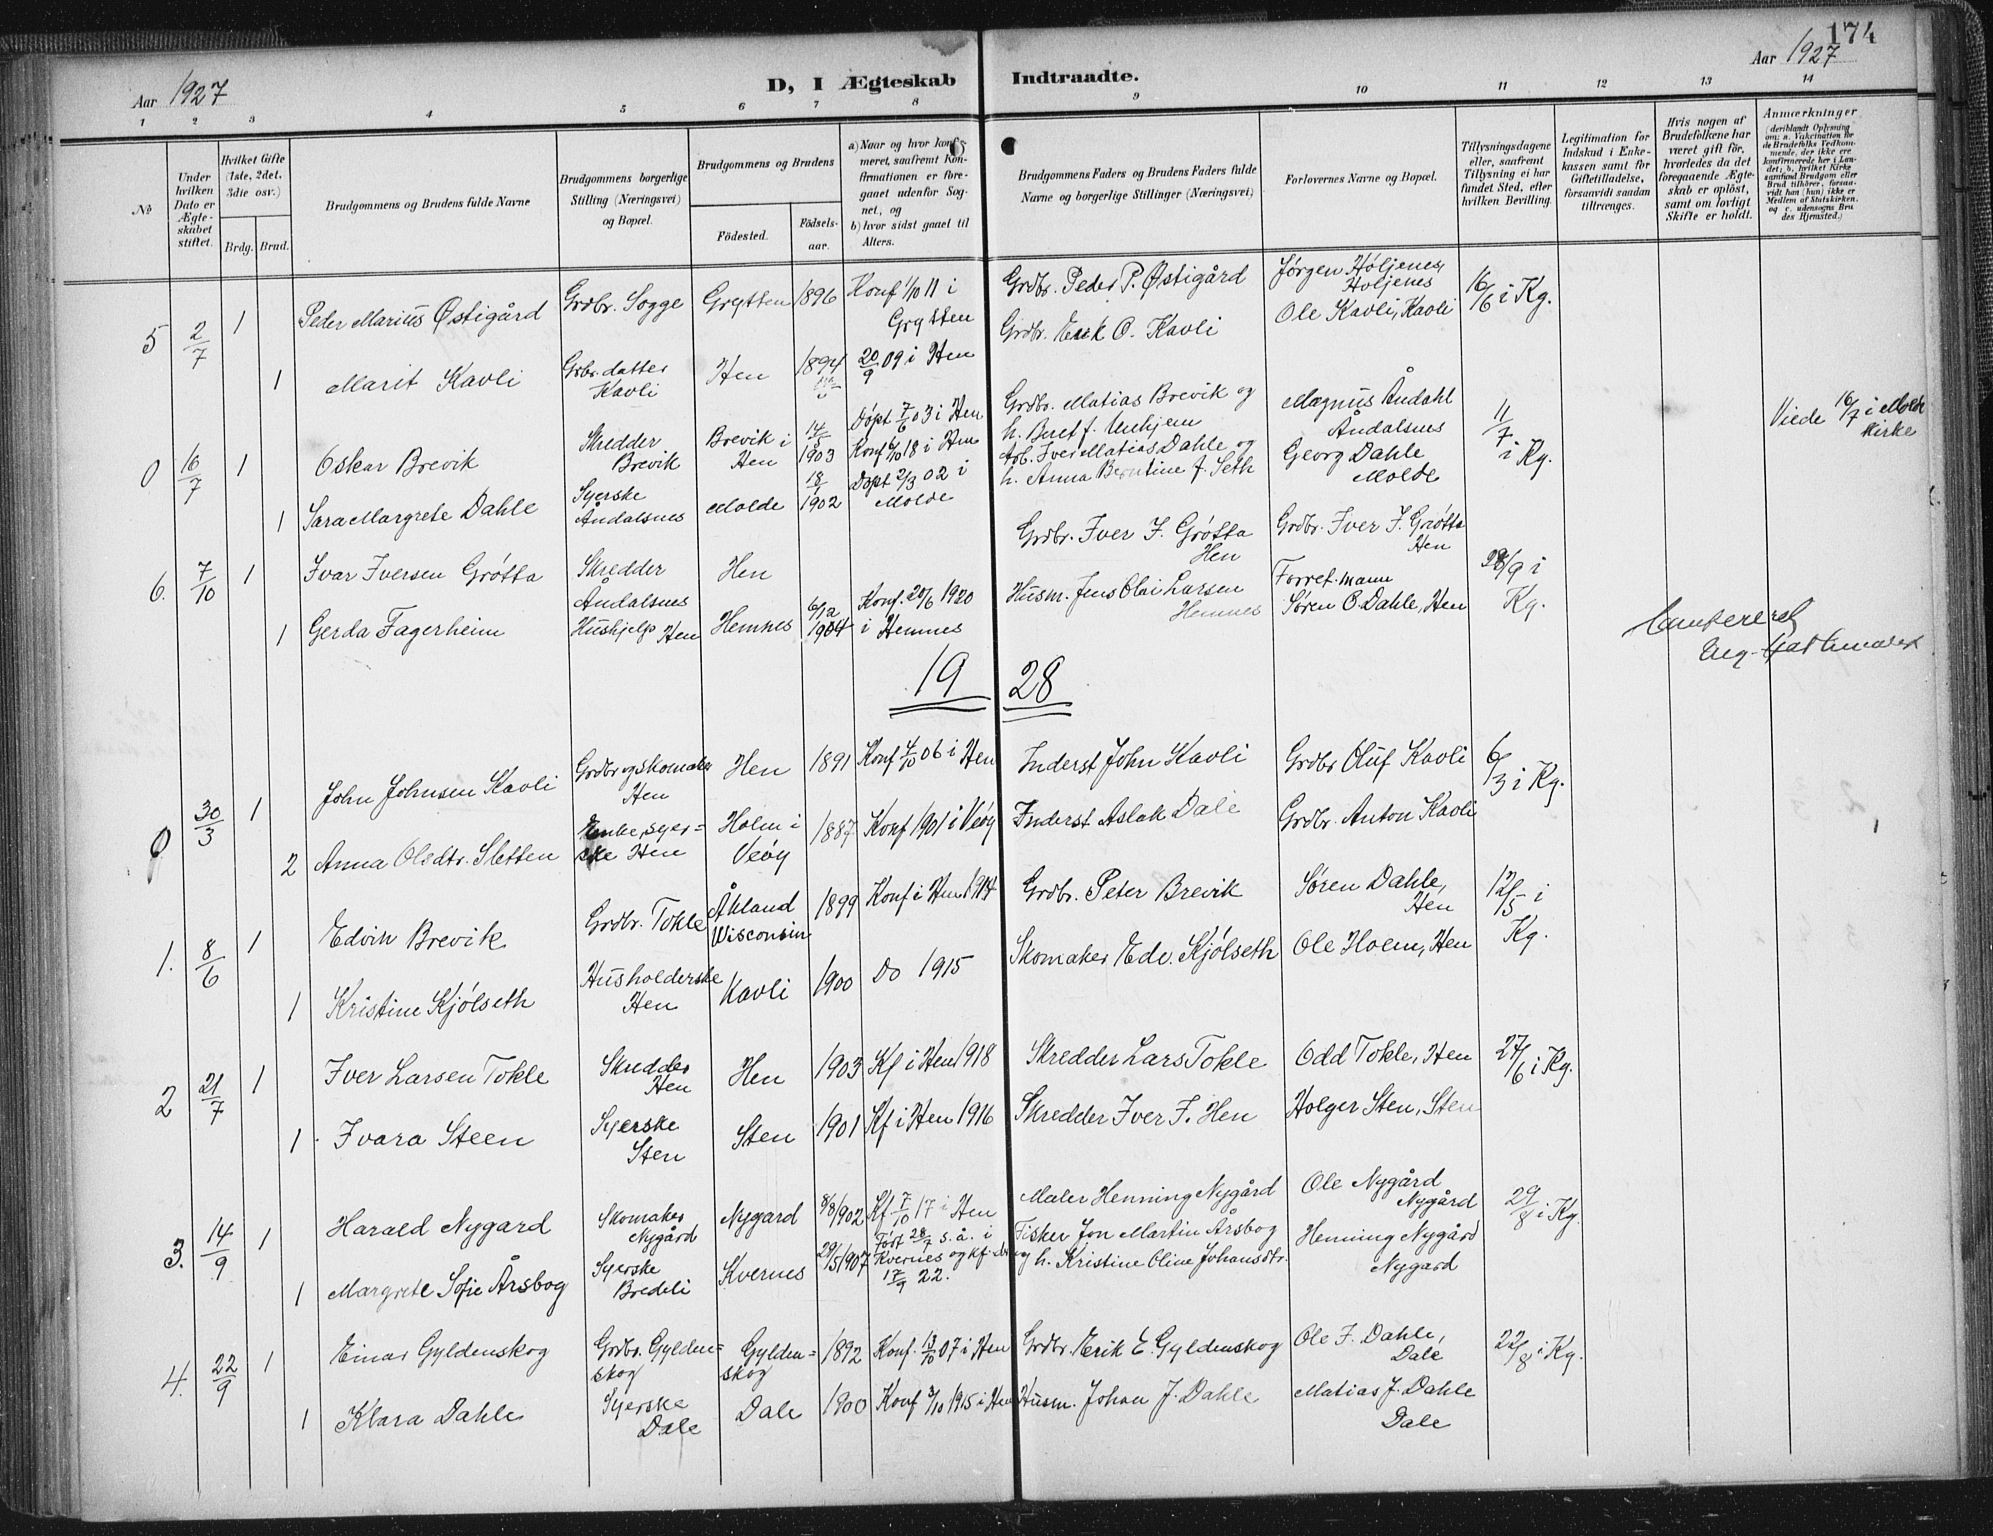 174
Aar 1927
D, I Ægteskab Indtraadte.
Aar 1927
1 2 3 4 5 6 7 8 9 10 11 12 13 14
No
Under hvilken Dato er Ægteskabet stiftet.
Hvilket Gifte (1ste, 2det, 3die osv.)
Brdg. Brud.
Brudgommens og Brudens fulde Navne
Brudgommens borgerlige Stilling (Næringsvei) og Bopæl.
Brudgommens og Brudens
Fødested.
Fødselsaar.
a) Naar og hvor konfirmeret, saafremt Konfirmationen er foregaaet udenfor Sognet, og
b) hvor sidst gaaet til Alters.
Brudgommens Faders og Brudens Faders fulde Navne og borgerlige Stillinger (Næringsvei)
Forlovernes Navne og Bopæl.
Tillysningsdagene eller, saafremt Tillysning ei har fundet Sted, efter hvilken Bevilling.
Legitimation for Indskud i Enkekassen samt for Giftetilladelse, forsaavidt saadan tiltrænges.
Hvis nogen af Brudefolkene har været gift før, hvorledes da det foregaaende Ægteskab er opløst, samt om lovligt Skifte er holdt.
Anmærkninger
(deriblandt Oplysning om: a. Vakcination for de Brudefolks Vedkommende, der ikke ere konfirmerede her i Landet; b. hvilket Kirkesamfund Brudgom eller Brud tilhører, forsaavidt han (hun) ikke er Medlem af Statskirken, og c. udensogns Brudes Hjemsted.)
5 2/7 1 Peder Marius Østigård Grdbr. Sogge Grytten 1896 Konf 1/10 11 i Grytten Grdbr. Peder P. Østigård Jørgen Høljenes, Holjenes 16/6 i Kg.
1 Marit Kavli Grbr.datter Kavli Hen 1894 20/9 09 i Hen Grdbr. Erik O. Kavli Ole Kavli, Kavli
0 16/7 1 Oskar Brevik Skredder Brevik Brevik i Hen 14/5 1903 Døpt 7/6 03 i Hen Konf 6/10 18 i Hen Grdbr. Matias Brevik og h. Beret f. Unhjem Magnus Åndahl Åndalsnes 11/7 i Kg. Viede 16/7 i Molde Kirke
1 Sara Margrete Dahle Syerske Åndalsnes Molde 18/1 1902 Døpt 2/3 02 i Molde Arb. Iver Matias Dahle og h. Anna Berntine f. Seth Georg Dahle Molde
6. 7/10 1 Ivar Iversen Grøtta Skredder Åndalsnes Hen Grdbr. Iver I. Grøtta Hen Grdbr. Iver I. Grøtta Hen 28/9 i Kg.
1 Gerda Fagerheim Hushjelp Hen Hemnes 6/12 1904 Konf. 20/6 1920 i Hemnes Husm. Jens Olai Larsen Hemnes Forret.mann Søren O. Dahle, Hen
19 28
0 30/3 1 John Johnsen Kavli Grdbr og skomaker Hen Hen 1891 Konf 4/10 06 i Hen Inderst John Kavli Grdbr Oluf Kavli 6/3 i Kg.
2 Anna Olsdtr. Sletten Enke, syerske Hen Holm i Veøy 1887 Konf 1901 i Veøy Inderst Aslak Dale Grdbr. Anton Kavli
1. 8/6 1 Edvin Brevik Grdbr. Tokle Åkland Wisconsin 1899 Konf i Hen 1914 Grdbr. Peter Brevik Søren Dahle, Hen 12/5 i Kg.
1 Kristine Kjølseth Husholderske Hen Kavli 1900 Do 1915 Skomaker Edv. Kjølseth Ole Holm, Hen
2 21/7 1 Iver Larsen Tokle Skredder Hen Hen 1903 Kf i Hen 1918 Skredder Lars Tokle Odd Tokle, Hen 24/6 i Kg.
1 Ivara Steen Syerske Sten Sten 1901 Kf i Hen 1916 Skredder Iver I. Hen Holger Sten, Sten
3. 14/9 1 Harald Nygard Skomaker Nygård Nygard 8/8 1902 Kf 7/10 17 i Hen Maler Henning Nygård Ole Nygård Nygård 29/8 i Kg.
1 Margrete Sofie Årsbog Syerske Bredeli Kvernes 29/5 1907 Født 28/7 s.å. i Kvernes og kf. 17/9 22. Fisker Jon Martin Årsbog og h. Kristine Oline Johansdtr. Henning Nygård Nygard
4. 22/9 1 Einar Gyldenskog Grdbr. Gyldenskog Gyldenskog 1892 Konf. 13/10 07 i Hen Grdbr. Erik E. Gyldenskog Ole I. Dahle, Dale 22/8 i Kg.
1 Klara Dahle Syerske Dale Dale 1900 Konf 3/10 1915 i Hen Husm. Johan J. Dahle Matias J. Dahle Dale